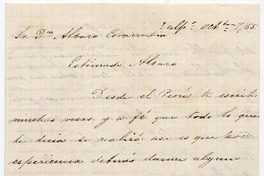 Valpº. Octbre 7/65
Sr. Dn Alvaro Covarrubias
Estimado Alvaro
Desde el Perú te escribí
muchas veces y a fé que todo lo que
te decia se realizó, asi es que hoi
esperiencia deberás darme alguna